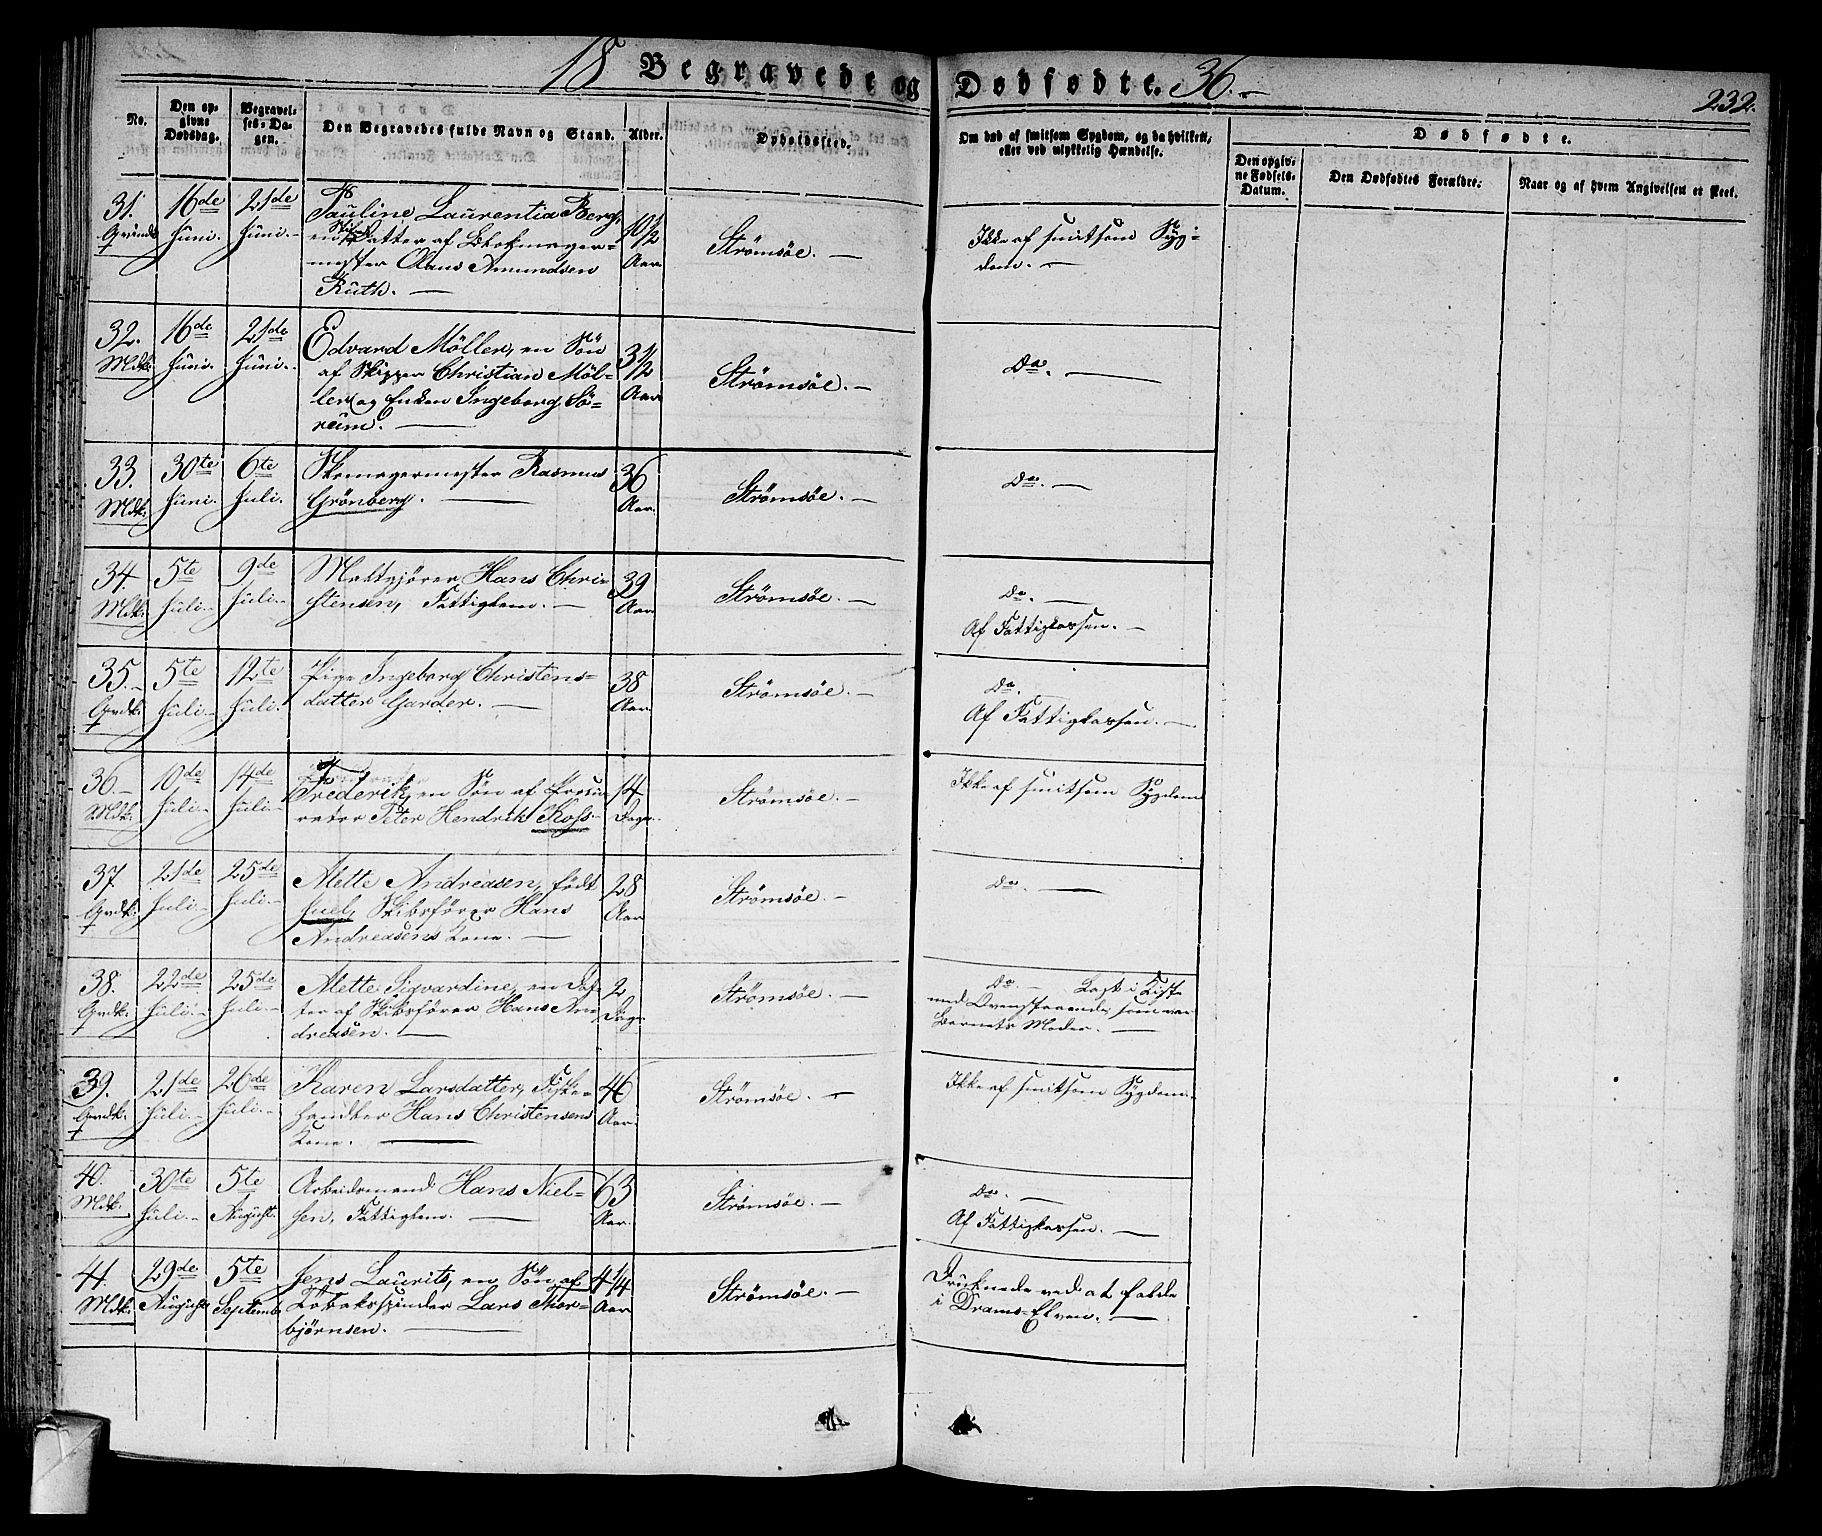 18 Begravede og Dødfødte. 36.-
232.
No.
Den op-
givne
Dødsdag.
Begravel-
ses-Da-
gen.
Den Begravedes fulde Navn og Stand.
Alder.
Opholdssted.
Om død af smitsom Sygdom, og da hvilken,
eller ved ulykkelig Hændelse.
Dødfødte.
Den opgiv-
ne Fødsels-
Datum.
Den Dødfødtes Forældre.
Naar og af hvem Angivelsen er skeet.
31. 16de Juni. 21de Juni.-
Pauline Laurentia Berg,
en Datter af Blokmager-
mester Claus Amundsen
Ruth. —
10 1/2 Aar
Strømsøe. —
Ikke af smitsom Syg-
dom. —
32. Mdk. 16de Juni. 21de Juni.-
Edvard Möller, en Søn
af Skipper Christian Möl-
ler og Enken Ingeborg Sö-
rum. —
3 1/2 Aar
Strømsöe. —
Do. —
33. Mdk. 30te Juni. 6te Juli.
Skomagermester Rasmus
Grønberg. —
36 Aar.
Strømsöe. —
Do. —
34. Mdk. 5te Juli.- 9de Juli.-
Maltgjører Hans Chri-
stensen, Fattiglem. —
39 Aar.
Strømsöe. —
Do. —
Af Fattigkassen. —
35.- Qvdk. 5te Juli.- 12te Juli.
Pige Ingeborg Christens-
datter Garder. —
38 Aar.
Strømsöe. —
Do.
Af Fattigkassen. —
36.- Mdk. 10de Juli.- 14de Juli.-
Frederik, en Søn af Procu-
rator Peter Hendrik Koss.
14 Dage.
Strømsöe. —
Ikke af smitsom Sygdom
37 Qvdk. 21de Juli.- 25de Juli.-
Mette Andreasen, födt
Juel, Skibsförer Hans
Andreasens Kone. —
28 Aar
Strømsöe. —
Do —
38. Qvdk. 22de Juli.- 25de Juli.-
Mette Sigvardine, en Dat-
ter af Skibsfører Hans An-
dreasen. —
2 Dage
Strømsöe. —
Do — Lagt i Kiste
med Ovenstaaende, som var
Barnets Moder. —
39. Qvdk. 21de Juli.- 26de Juli.-
Karen Larsdatter, Fiske-
handler Hans Christensens
Kone. —
46 Aar.
Strømsöe. —
Ikke af smitsom Sygdom.
40. Mdk. 30te Juli.- 5te August.
Arbeidsmand Hans Niel-
sen, Fattiglem. —
63 Aar.
Strømsöe. —
Do. —
Af Fattigkassen. —
41. Mdk. 29de August 5te Septembr
Jens Laurits, en Søn af
Tobaksspinder Lars Thor-
bjørnsen. —
4 1/4 Aar
Strømsöe. —
Druknede ved at falde
i Drams-Elven. —